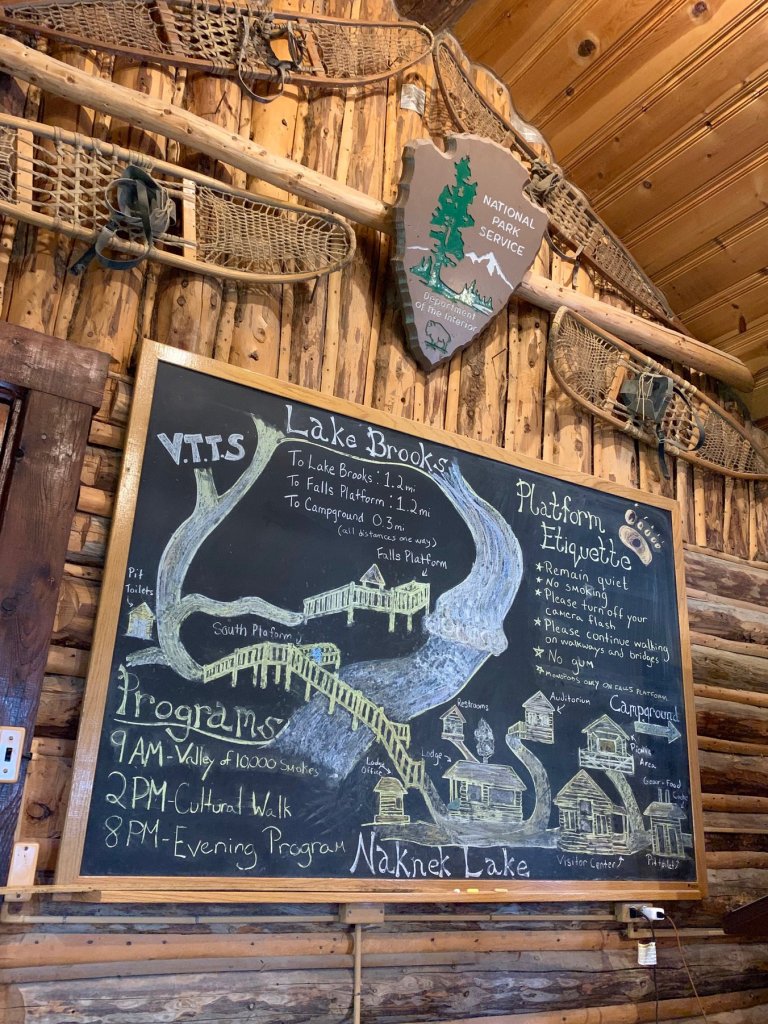 NATIONAL
PARK
SERVICE
Department
of the Interior
V.T.T.S
Lake Brooks
To Lake Brooks: 1.2mi
To Falls Platform: 1.2mi
To Campground 0.3mi
(all distances one way)
Falls Platform
Platform
Etiquette
Remain quiet
No smoking
Please turn off your
camera flash
Please continue walking
on walkways and bridges
No gum
MONOPODS ONLY ON FALLS PLATFORM
Pit
Toilets
South Plaform
Programs
9AM-Valley of 10,000 Smokes
2PM-Cultural Walk
8PM-Evening Program
Restrooms
Auditorium
Campground
Picnic
Area
Lodge
Lodge
Office
Gear + Food
Cache
Visitor Center
Pit toilet
Naknek Lake